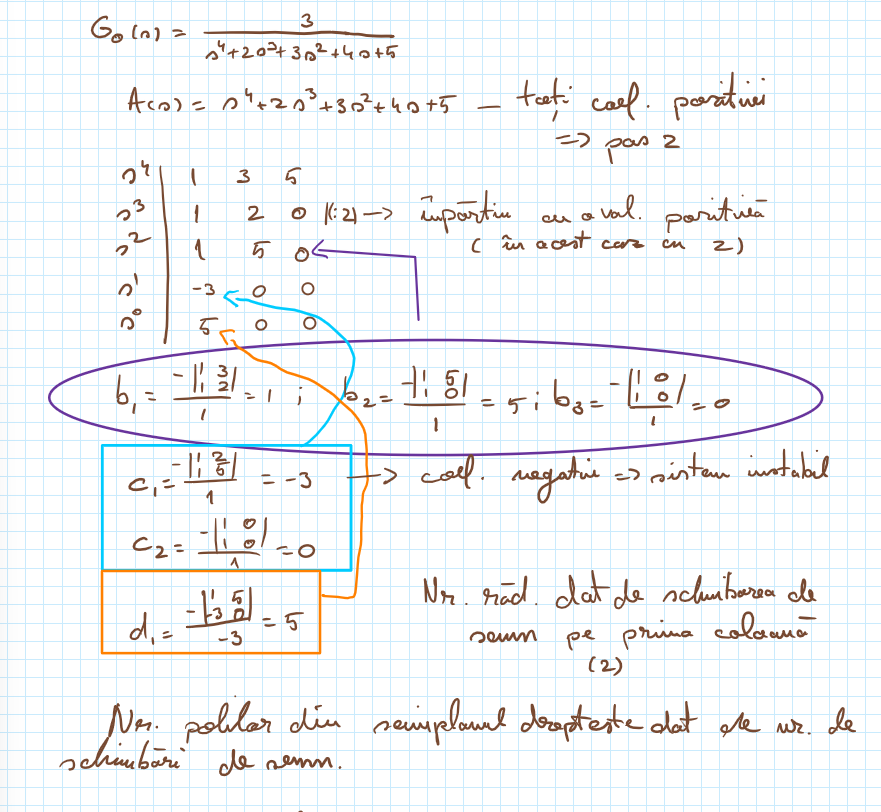 G₀(s) = 3 / (s⁴+2s³+3s²+4s+5)
A(s) = s⁴+2s³+3s²+4s+5 — toți coef. pozitivi
=> pas 2
s⁴ | 1 3 5
s³ | 1 2 0 |(:2) → împărțim cu o val. pozitivă
(în acest caz cu 2)
s² | 1 5 0
s¹ | -3 0 0
s⁰ | 5 0 0
b₁ = -|1 3; 1 2| / 1 = 1 ; b₂ = -|1 5; 1 0| / 1 = 5 ; b₃ = -|1 0; 1 0| / 1 = 0
c₁ = -|1 2; 1 5| / 1 = -3 → coef. negativ => sistem instabil
c₂ = -|1 0; 1 0| / 1 = 0
d₁ = -|1 5; -3 0| / -3 = 5
Nr. răd. dat de schimbarea de
semn pe prima coloană
(2)
Nr. polilor din semiplanul drept este dat de nr. de
schimbări de semn.